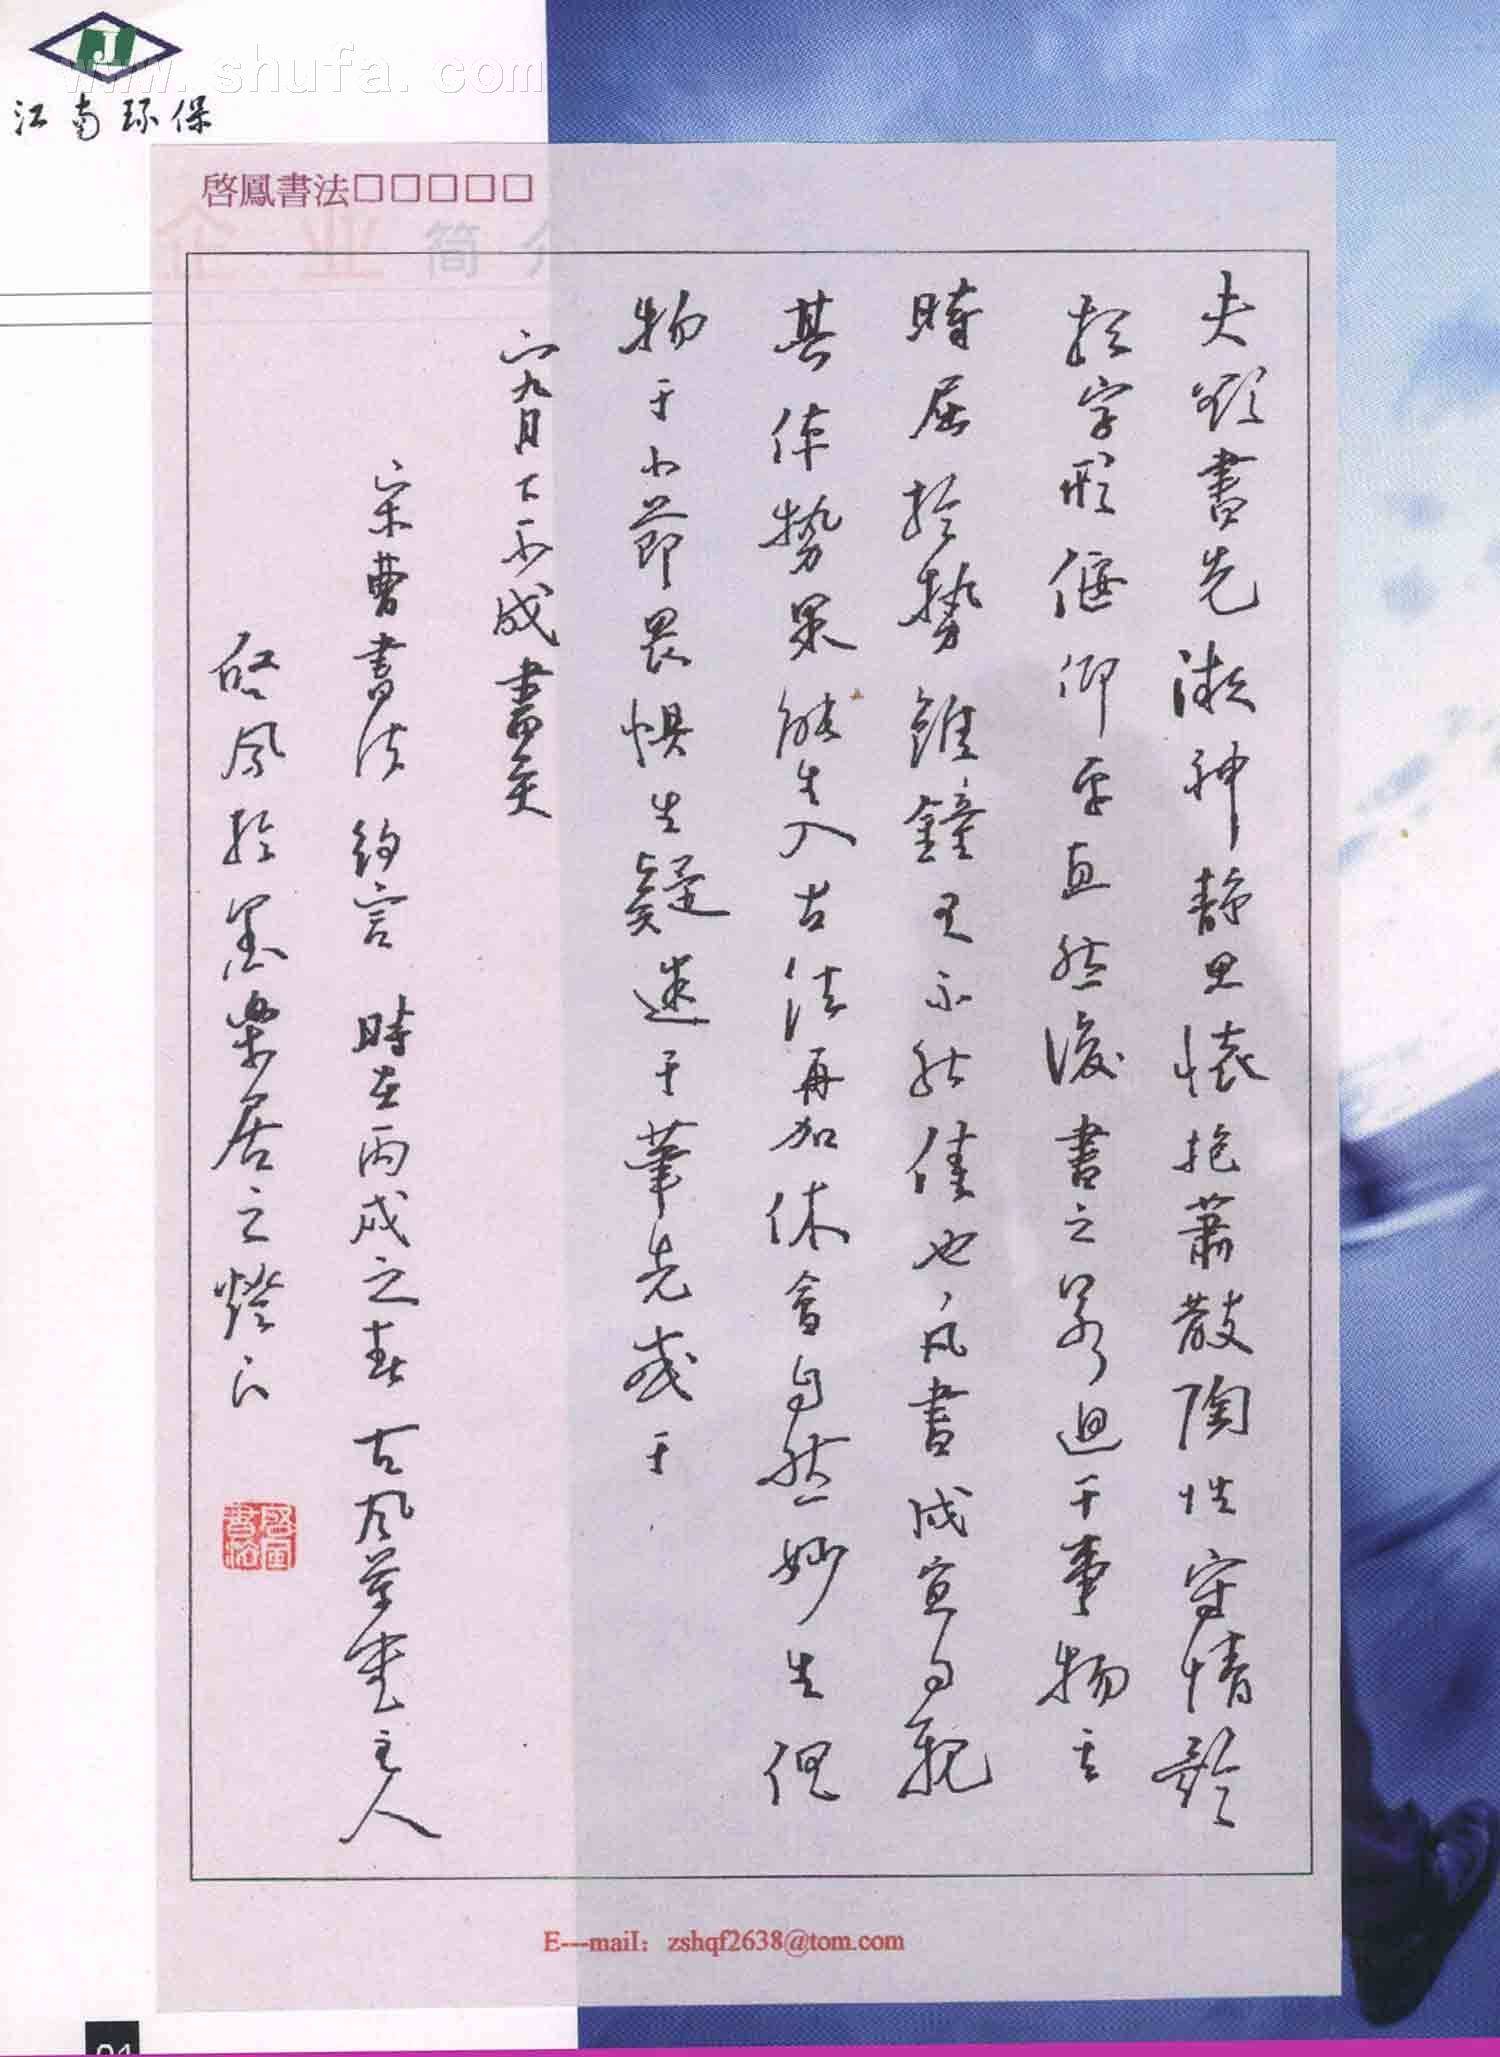 www.shufa.com
J
江南环保
啓鳳書法□□□□□
企业简介
夫欲書先凝神静思懷抱蕭散陶性寫情預
想字形偃仰平直然後書之若迫于事物
時屈於勢雖鐘王不能佳也凡書成宜自觀
其体勢果能出入古法再加体會自然妙生但
拘于小節畏惧生疑迷于筆先惑于
腕下不成書矣
宋曹書法約言 時在丙戌之春 古風草堂主人
啓鳳於墨樂居之燈下
啓鳳書法
E---mail: zshqf2638@tom.com
01